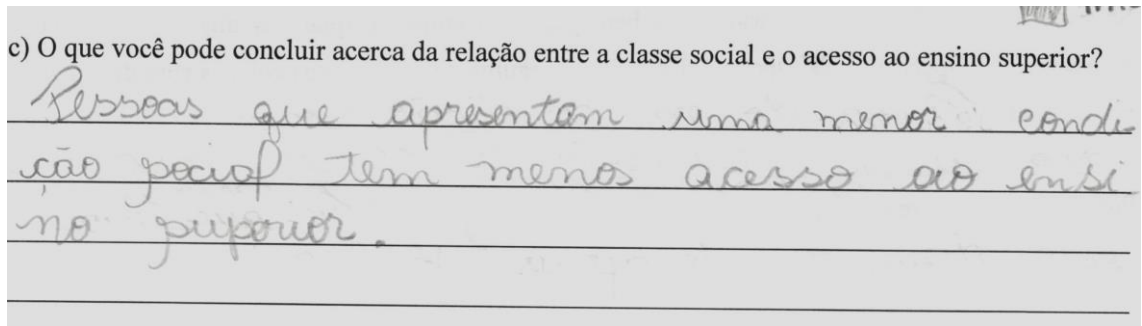 c) O que você pode concluir acerca da relação entre a classe social e o acesso ao ensino superior?
Pessoas que apresentam uma menor condi
ção social tem menos acesso ao ensi
no superior.